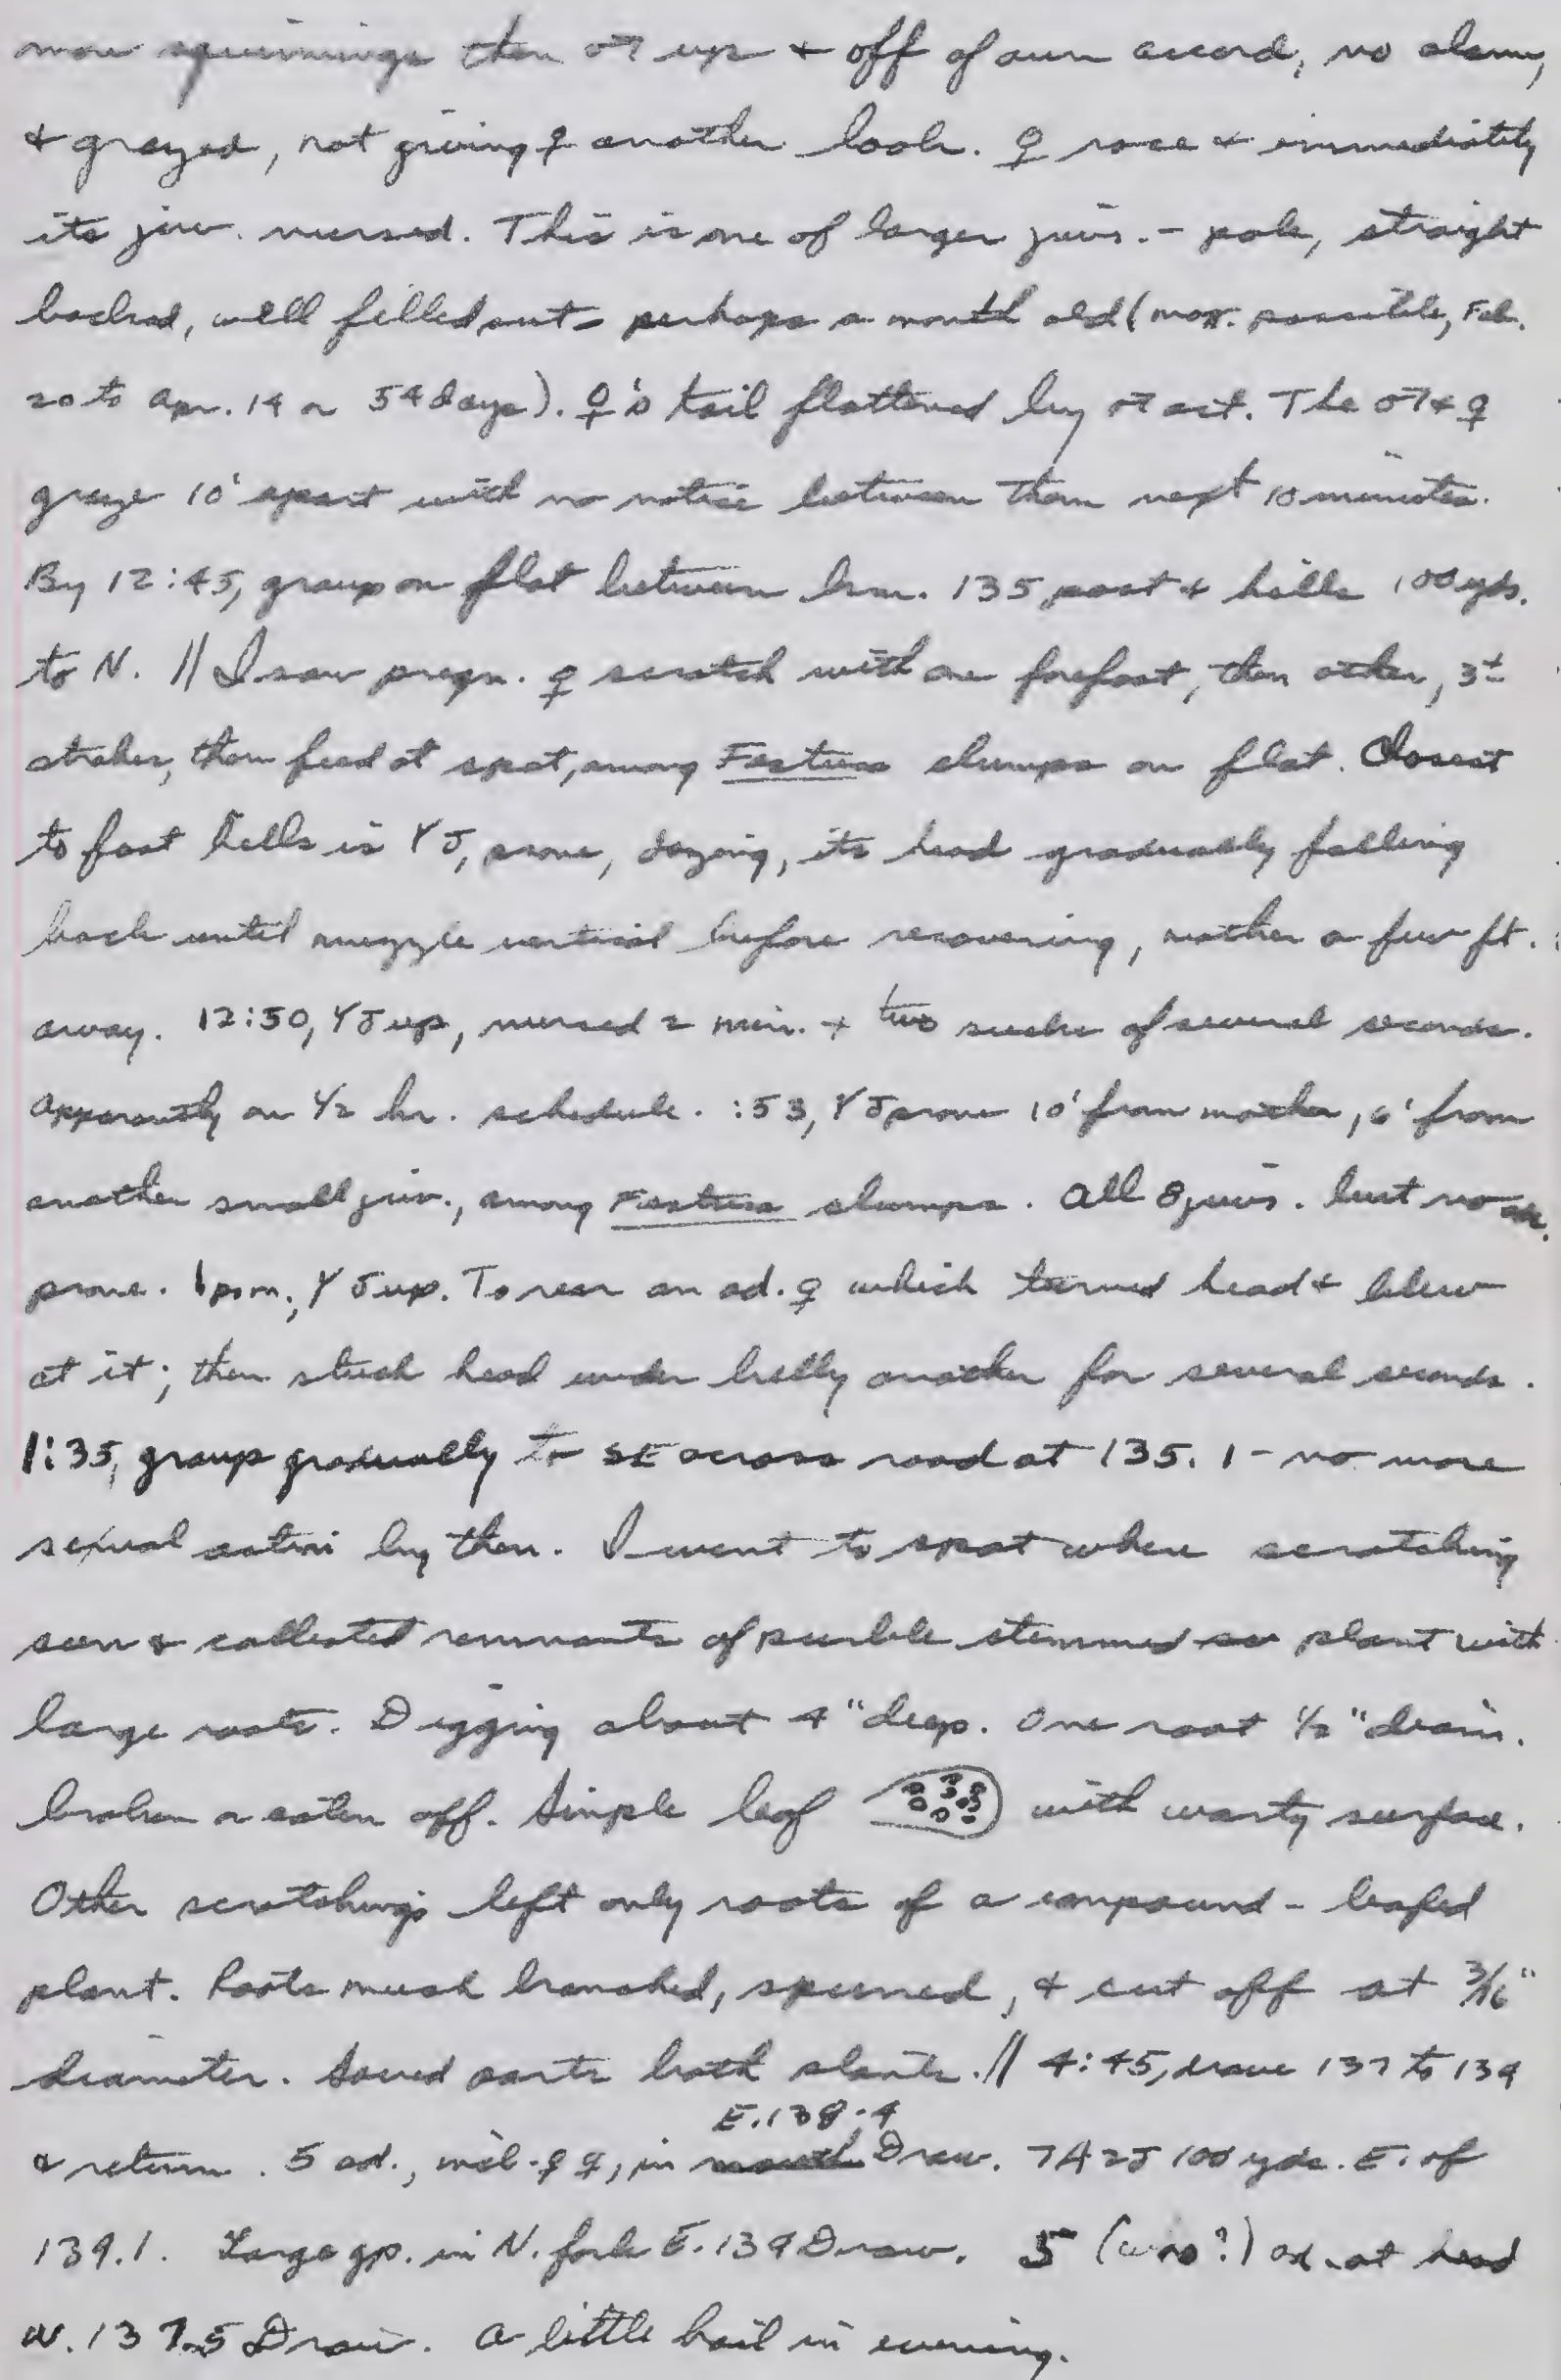 more squirmings then ♂ up + off of own accord, no alarm,
+ grazed, not giving ♀ another look. ♀ rose + immediately
its juv. nursed. This is one of larger juvs. - pale, straight
backed, well filled out - perhaps a month old (max. possible, Feb.
20 to Apr. 14 or 54 days). ♀'s tail flattened by ♂ act. The ♂ + ♀
graze 10' apart with no notice between them next 10 minutes.
By 12:45, group on flat between km. 135 post + hills 100 yds.
to N. // I saw pregn. ♀ scratch with one forefoot, then other, 3±
strokes, then feed at spot, among Festuca clumps on flat. Closest
to foot hills is YJ, prone, dozing, its head gradually falling
back until muzzle vertical before recovering, mother a few ft.
away. 12:50, YJ up, nursed 2 min. + two sucks of several seconds.
Apparently on 1/2 hr. schedule. :53, YJ prone 10' from mother, 6' from
another small juv., among Festuca clumps. All 8 juvs. but no ad.
prone. 1 p.m., YJ up. To rear an ad. ♀ which turned head + blew
at it; then stuck head under belly another for several seconds.
1:35, group gradually to SE across road at 135.1 - no more
sexual action by then. I went to spot where scratching
seen + collected remnants of purble stemmed plant with
large roots. Digging about 4" deep. One root 1/2" diam.
broken or eaten off. Simple leaf with warty surface.
Other scratchings left only roots of a compound - leafed
plant. Roots much branched, spurred, + cut off at 3/16"
diameter. Saved parts both plants. // 4:45, drove 137 to 139
E. 138.4
+ return. 5 ad., incl. ♀♀, in mouth Draw. 7A2J 100 yds. E. of
139.1. Large gp. in N. fork E. 139 Draw. 5 ad. at head
W. 137.5 Draw. A little hail in evening.